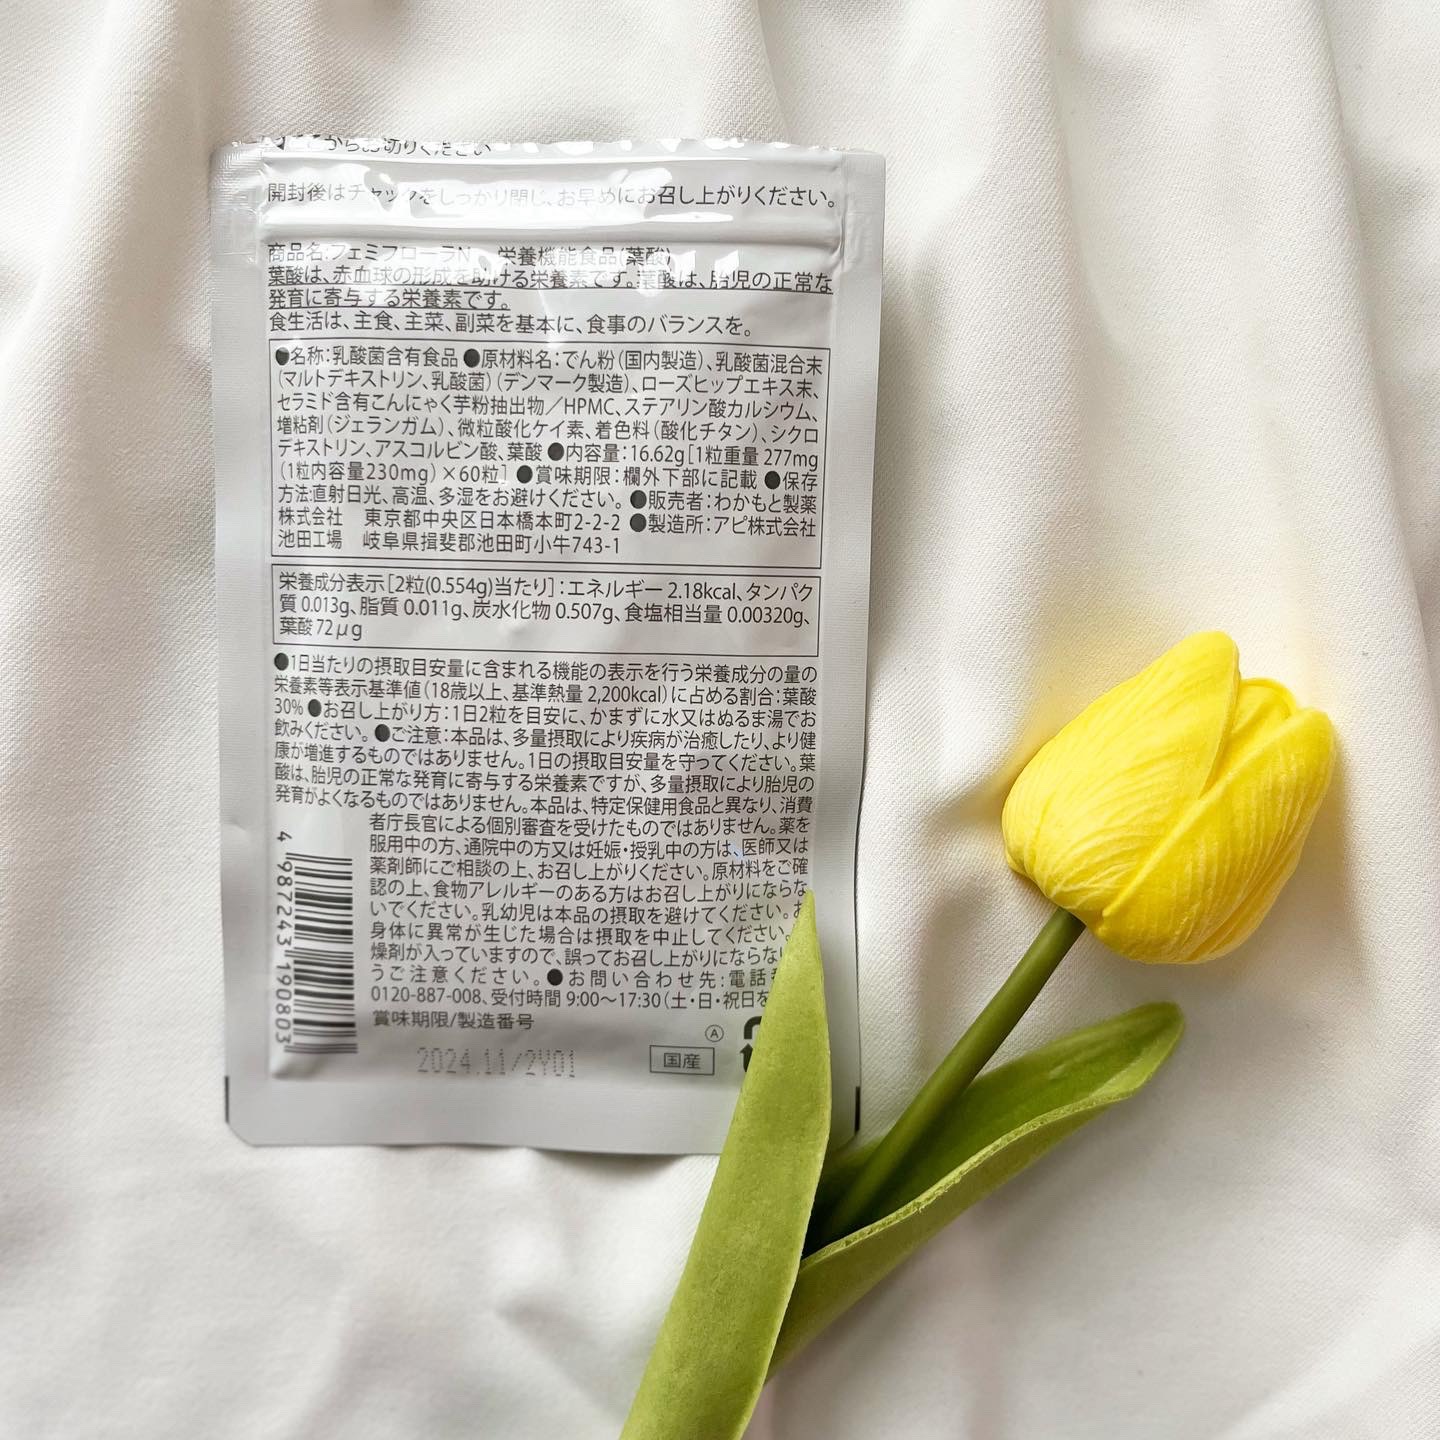 ここからお切りください
開封後はチャックをしっかり閉じ、お早めにお召し上がりください。
商品名:フェミフローラN 栄養機能食品(葉酸)
葉酸は、赤血球の形成を助ける栄養素です。葉酸は、胎児の正常な
発育に寄与する栄養素です。
食生活は、主食、主菜、副菜を基本に、食事のバランスを。
●名称:乳酸菌含有食品 ●原材料名:でん粉(国内製造)、乳酸菌混合末
(マルトデキストリン、乳酸菌)(デンマーク製造)、ローズヒップエキス末、
セラミド含有こんにゃく芋粉抽出物/HPMC、ステアリン酸カルシウム、
増粘剤(ジェランガム)、微粒酸化ケイ素、着色料(酸化チタン)、シクロ
デキストリン、アスコルビン酸、葉酸 ●内容量:16.62g[1粒重量 277mg
(1粒内容量230mg)×60粒] ●賞味期限:欄外下部に記載 ●保存
方法:直射日光、高温、多湿をお避けください。 ●販売者:わかもと製薬
株式会社 東京都中央区日本橋本町2-2-2 ●製造所:アピ株式会社
池田工場 岐阜県揖斐郡池田町小牛743-1
栄養成分表示[2粒(0.554g)当たり]:エネルギー 2.18kcal、タンパク
質 0.013g、脂質 0.011g、炭水化物 0.507g、食塩相当量 0.00320g、
葉酸 72μg
●1日当たりの摂取目安量に含まれる機能の表示を行う栄養成分の量の
栄養素等表示基準値(18歳以上、基準熱量 2,200kcal)に占める割合:葉酸
30% ●お召し上がり方:1日2粒を目安に、かまずに水又はぬるま湯でお
飲みください。 ●ご注意:本品は、多量摂取により疾病が治癒したり、より健
康が増進するものではありません。1日の摂取目安量を守ってください。葉
酸は、胎児の正常な発育に寄与する栄養素ですが、多量摂取により胎児の
発育がよくなるものではありません。本品は、特定保健用食品と異なり、消費
者庁長官による個別審査を受けたものではありません。薬を
服用中の方、通院中の方又は妊娠・授乳中の方は、医師又は
薬剤師にご相談の上、お召し上がりください。原材料をご確
認の上、食物アレルギーのある方はお召し上がりにならな
いでください。乳幼児は本品の摂取を避けてください。お
身体に異常が生じた場合は摂取を中止してください。
燥剤が入っていますので、誤ってお召し上がりにならない
うご注意ください。●お問い合わせ先:電話
0120-887-008、受付時間 9:00～17:30(土・日・祝日を
賞味期限/製造番号
2024.11/2Y01
A
国産
4 987243 190803